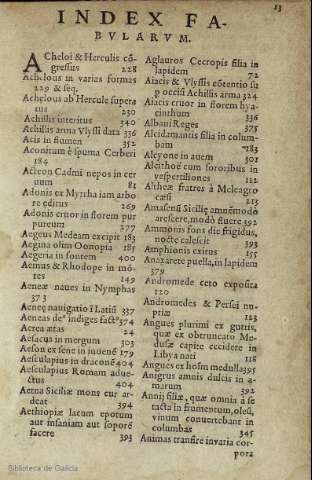 13
INDEX FA-
BVLARVM.
Acheloi & Herculis cõ-
gressus 228
Achelous in varias formas
229 & seq.
Achelous ab Hercule supera
tus 230
Achillis interitus 340
Achillis arma Vlyssi data 336
Acis in flumen 352
Aconitum è spuma Cerberi
184
Acteon Cadmi nepos in cer
uum 81
Adonis ex Myrrha iam arbo
re editus 269
Adonis cruor in florem pur
pureum 277
Aegeus Medeam excipit 183
Aegina olim Oonopia 187
Aegeria in fontem 400
Aemus & Rhodope in mõ-
res 149
Aeneæ naues in Nymphas
373
Aeneę nauigatio ĩ Latiũ 337
Aeneas deꝰ indiges factꝰ 374
Aerea ætas 24
Aesacus in mergum 303
Aeson ex sene in iuuenẽ 179
Aesculapius in draconẽ 404
Aesculapius Romam adue-
ctus 404
Aetna Siciliæ mons cur ar-
deat 394
Aethiopiæ lacum epotum
aut insaniam aut soporẽ
facere 393
Aglauros Cecropis filia in
lapidem 72
Aiacis & Vlyssis cõtentio su
p occisi Achillis arma 324
Aiacis cruor in florem hya-
cinthum 336
Albani Reges 375
Alcidamantis filia in colum-
bam 183
Alcyone in auem 301
Alcithoë cum sororibus in
vespertiliones 112
Altheæ fratres à Meleagro
cæsi 213
Amasenũ Sicilię amnẽ modò
arescere, modò fluere 392
Ammonis fons die frigidus,
nocte calescit 393
Amphionis exitus 155
Anaxarete puella, in lapidem
379
Andromede ceto exposita
120
Andromedes & Persei nu-
ptiæ 123
Angues plurimi ex guttis,
quæ ex oberuncato Me-
dusæ capite cecidere in
Libya nati 118
Angues ex hoĩm medulla 395
Anigrus amnis dulcis in a-
marum 392
Annij filiæ, quæ omnia à se
tacta in frumentum, oleũ,
vinum conuertebant in
columbas 345
Animas transire in varia cor-
pora
Biblioteca de Galicia